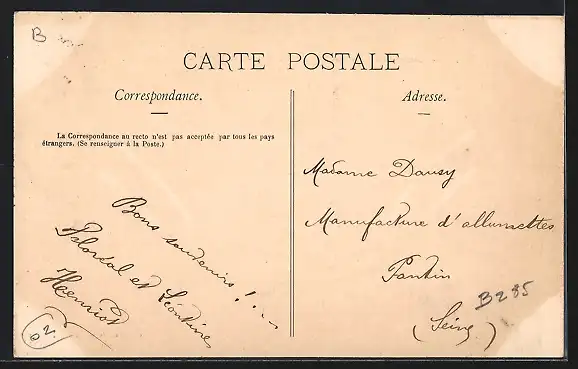 B
CARTE POSTALE
Correspondance.
La Correspondance au recto n'est pas acceptée par tous les pays
étrangers. (Se renseigner à la Poste.)
Bons souvenirs !...
et Léontine
Adresse.
Madame Dausy
Manufacture d'allumettes
Pantin
B285
(Seine)